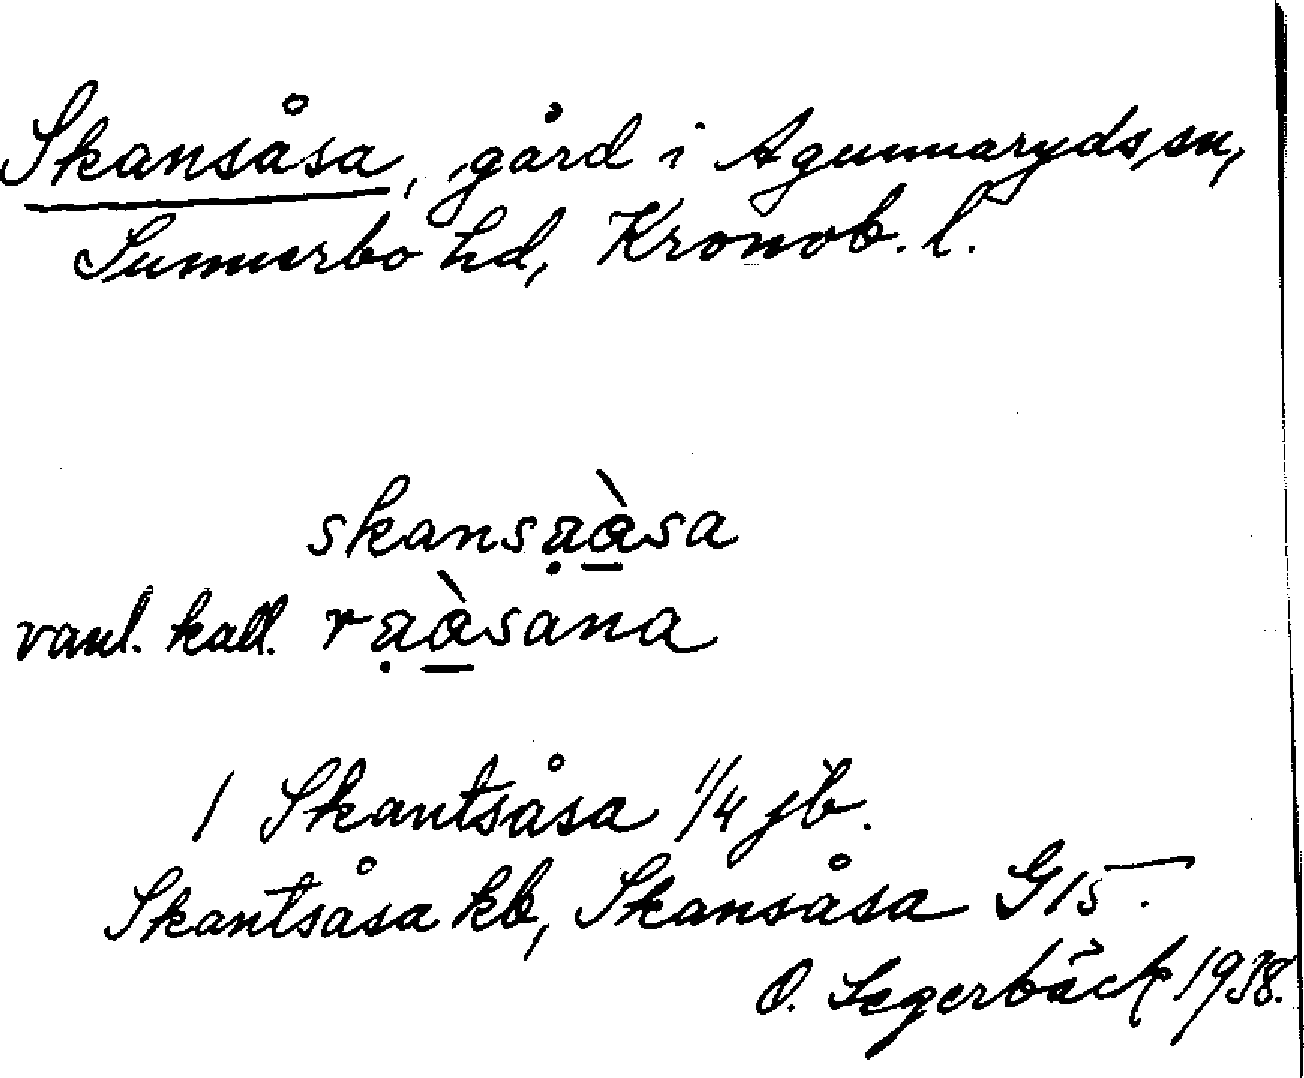 Skansåsa, gård i Agunnaryds sn,
Sunnerbo hd, Kronob. l.
skansạà̱sa
vanl. kall. rạà̱sana
1 Skantsåsa 1/4 jb.
Skantsåsa kb, Skansåsa G15.
O. Segerbäck 1938.